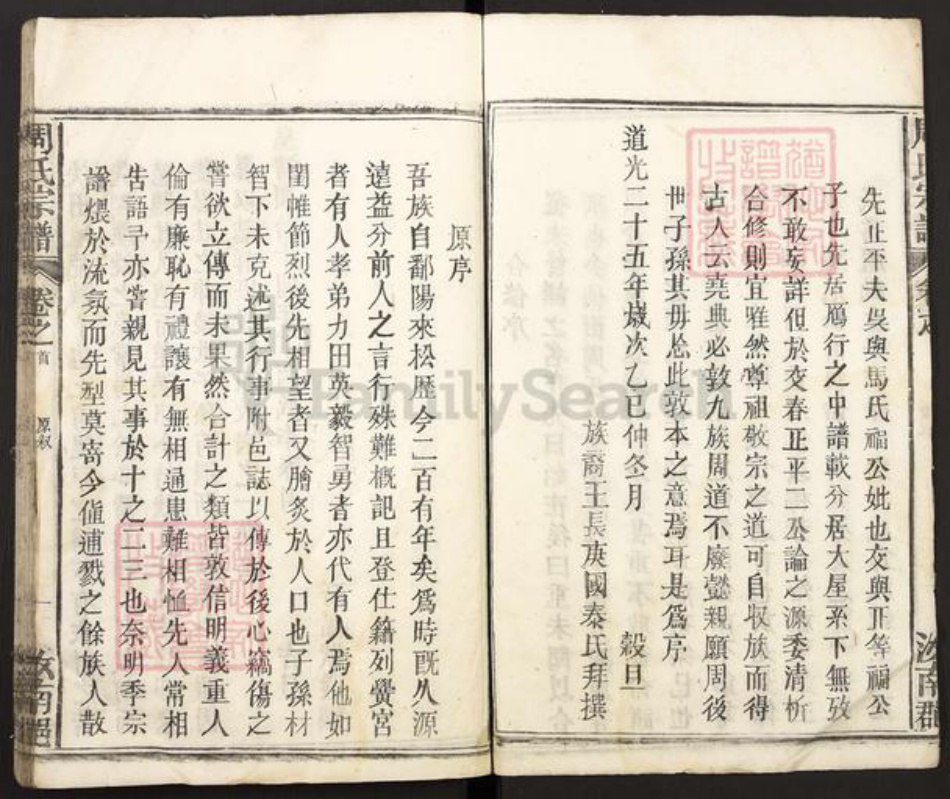 先正平夫吳與馬氏福公妣也交與正等福公
子也先居鴈行之中譜載分居大屋系下無攷
不敢妄詳但於交春正平二公論之源委清析
合修則宜雖然尊祖敬宗之道可自収族而得
古人云堯典必敦九族周道不廢懿親願周後
世子孫其毋忽此敦本之意焉耳是爲序
道光二十五年歲次乙巳仲冬月 穀旦
族裔王長庚國泰氏拜撰
原序
吾族自鄱陽來松歷今二百有年矣爲時旣久源
遠益分前人之言行殊難概記且登仕籍列黌宮
者有人孝弟力田英毅智勇者亦代有人焉他如
閨帷節烈後先相望者又膾炙於人口也子孫材
智下未克述其行事附邑誌以傳於後心竊傷之
嘗欲立傳而未果然合計之類皆敦信明義重人
倫有廉恥有禮讓有無相通患難相恤先人常相
告語予亦嘗親見其事於十之二三也奈明季宗
譜煨於流氛而先型莫寄今僅逋戮之餘族人散
周氏宗譜 卷之首 原叙 一 汝南郡
FamilySearch